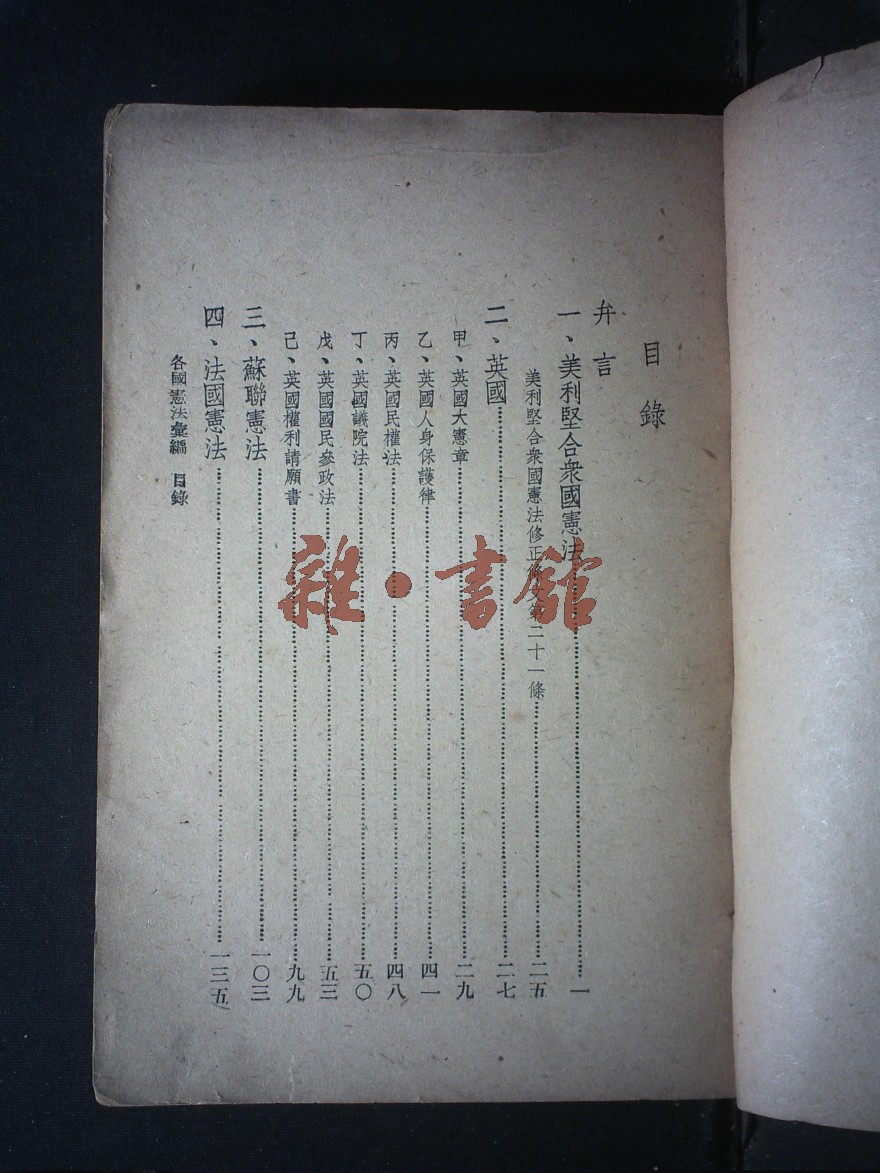 目錄
弁言
一、美利堅合衆國憲法……一
美利堅合衆國憲法修正條文第二十一條……二五
二、英國……二七
甲、英國大憲章……二九
乙、英國人身保護律……四一
丙、英國民權法……四八
丁、英國議院法……五〇
戊、英國國民參政法……五三
己、英國權利請願書……九九
三、蘇聯憲法……一〇三
四、法國憲法……一三五
各國憲法彙編 目錄
一
雜·書館